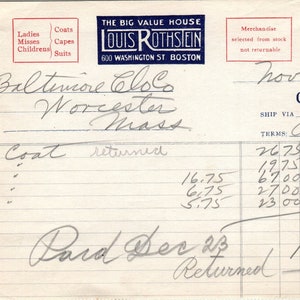 THE BIG VALUE HOUSE
LOUIS ROTHSTEIN
600 WASHINGTON ST. BOSTON
Ladies Misses Childrens
Coats Capes Suits
Merchandise
selected from stock
not returnable
Nov
Baltimore Clo Co
Worcester
Mass
SHIP VIA
TERMS:
Coat returned 26 75
" 19 75
" 16.75 67 00
" 6.75 27 00
" 5.75 23 00
Paid Dec 23
Returned